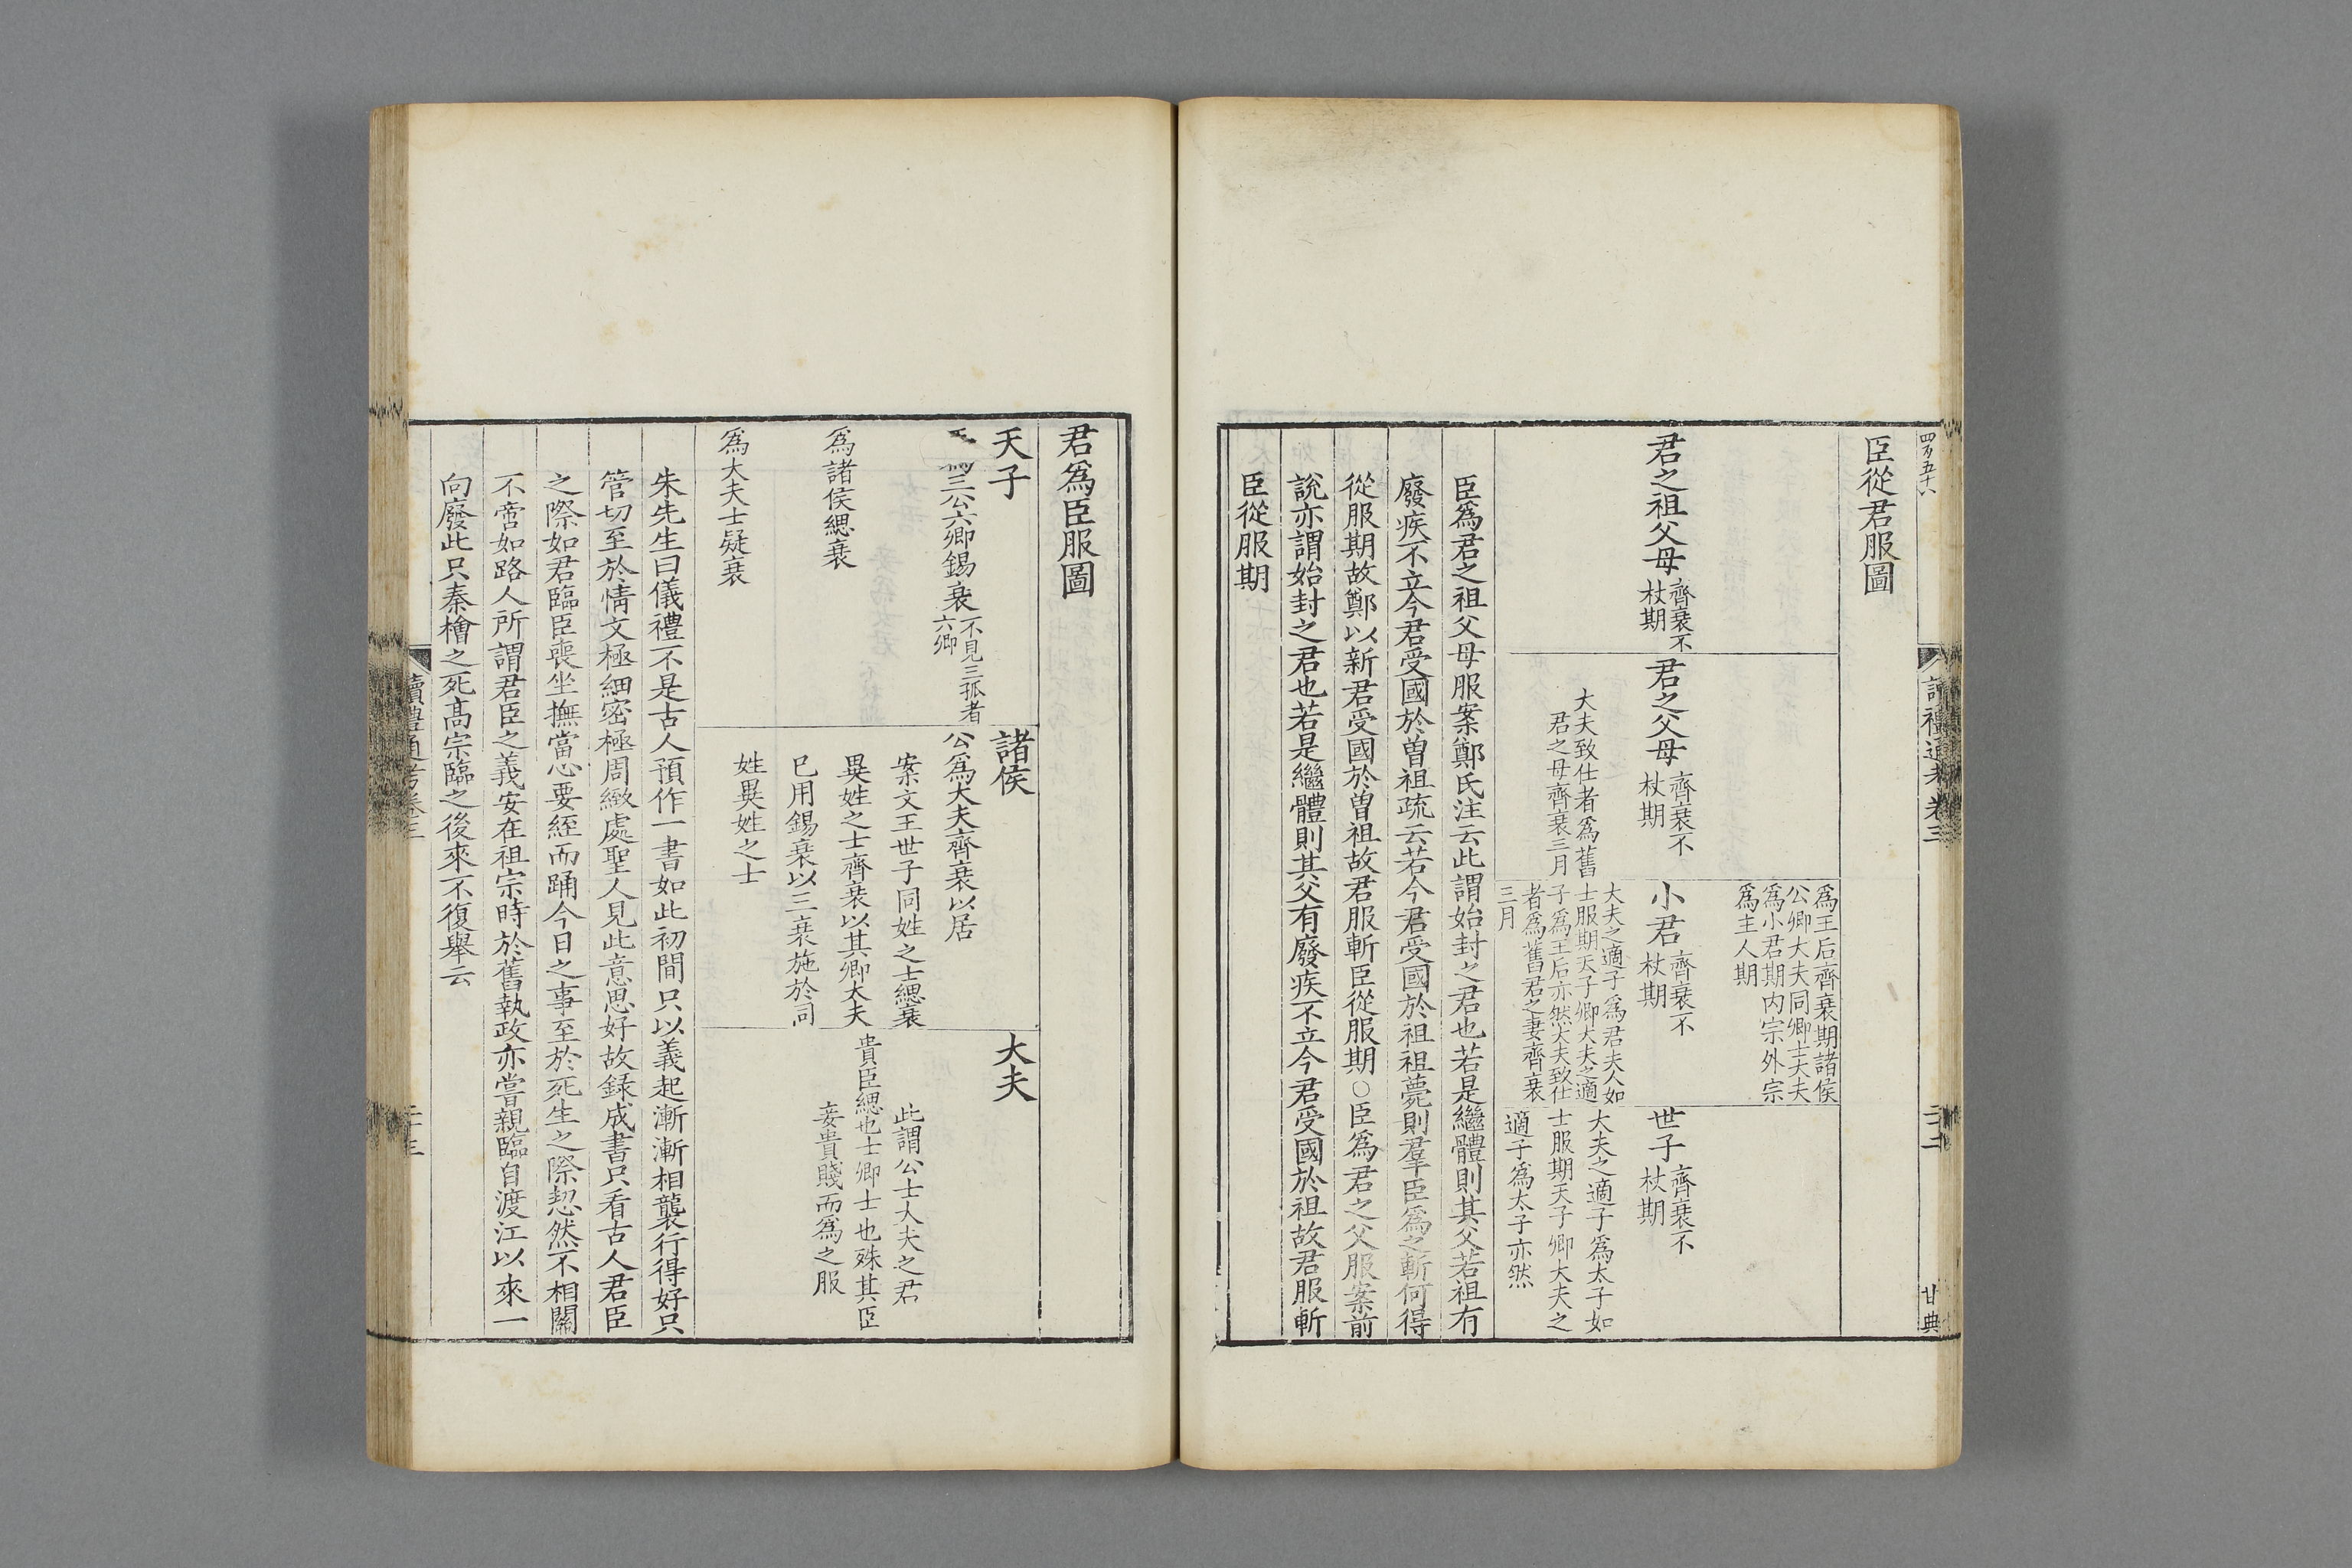 四百五十六
讀禮通考卷三
二十二
甘典
臣從君服圖
君之祖父母
齊衰不
杖期
君之父母
齊衰不
杖期
大夫致仕者爲舊
君之母齊衰三月
爲王后齊衰期諸侯
公卿大夫同卿士大夫
爲小君期內宗外宗
爲主人期
小君
齊衰不
杖期
大夫之適子爲君夫人如
士服期天子卿大夫之適
子爲王后亦然大夫致仕
者爲舊君之妻齊衰
三月
世子
齊衰不
杖期
大夫之適子爲太子如
士服期天子卿大夫之
適子爲太子亦然
臣爲君之祖父母服案鄭氏注云此謂始封之君也若是繼體則其父若祖有
廢疾不立今君受國於曾祖疏云若今君受國於祖祖薨則羣臣爲之斬何得
從服期故鄭以新君受國於曾祖故君服斬臣從服期○臣爲君之父服案前
說亦謂始封之君也若是繼體則其父有廢疾不立今君受國於祖故君服斬
臣從服期
君爲臣服圖
天子
爲三公六卿錫衰
不見三孤者
六卿
爲諸侯緦衰
爲大夫士疑衰
諸侯
公爲大夫齊衰以居
案文王世子同姓之士緦衰
異姓之士齊衰以其卿大夫
已用錫衰以三衰施於同
姓異姓之士
大夫
此謂公士大夫之君
貴臣緦也士卿士也殊其臣
妾貴賤而爲之服
朱先生曰儀禮不是古人預作一書如此初間只以義起漸漸相襲行得好只
管切至於情文極細密極周緻處聖人見此意思好故録成書只看古人君臣
之際如君臨臣喪坐撫當心要絰而踊今日之事至於死生之際恝然不相關
不啻如路人所謂君臣之義安在祖宗時於舊執政亦嘗親臨自渡江以來一
向廢此只秦檜之死高宗臨之後來不復舉云
讀禮通考卷三
二十三